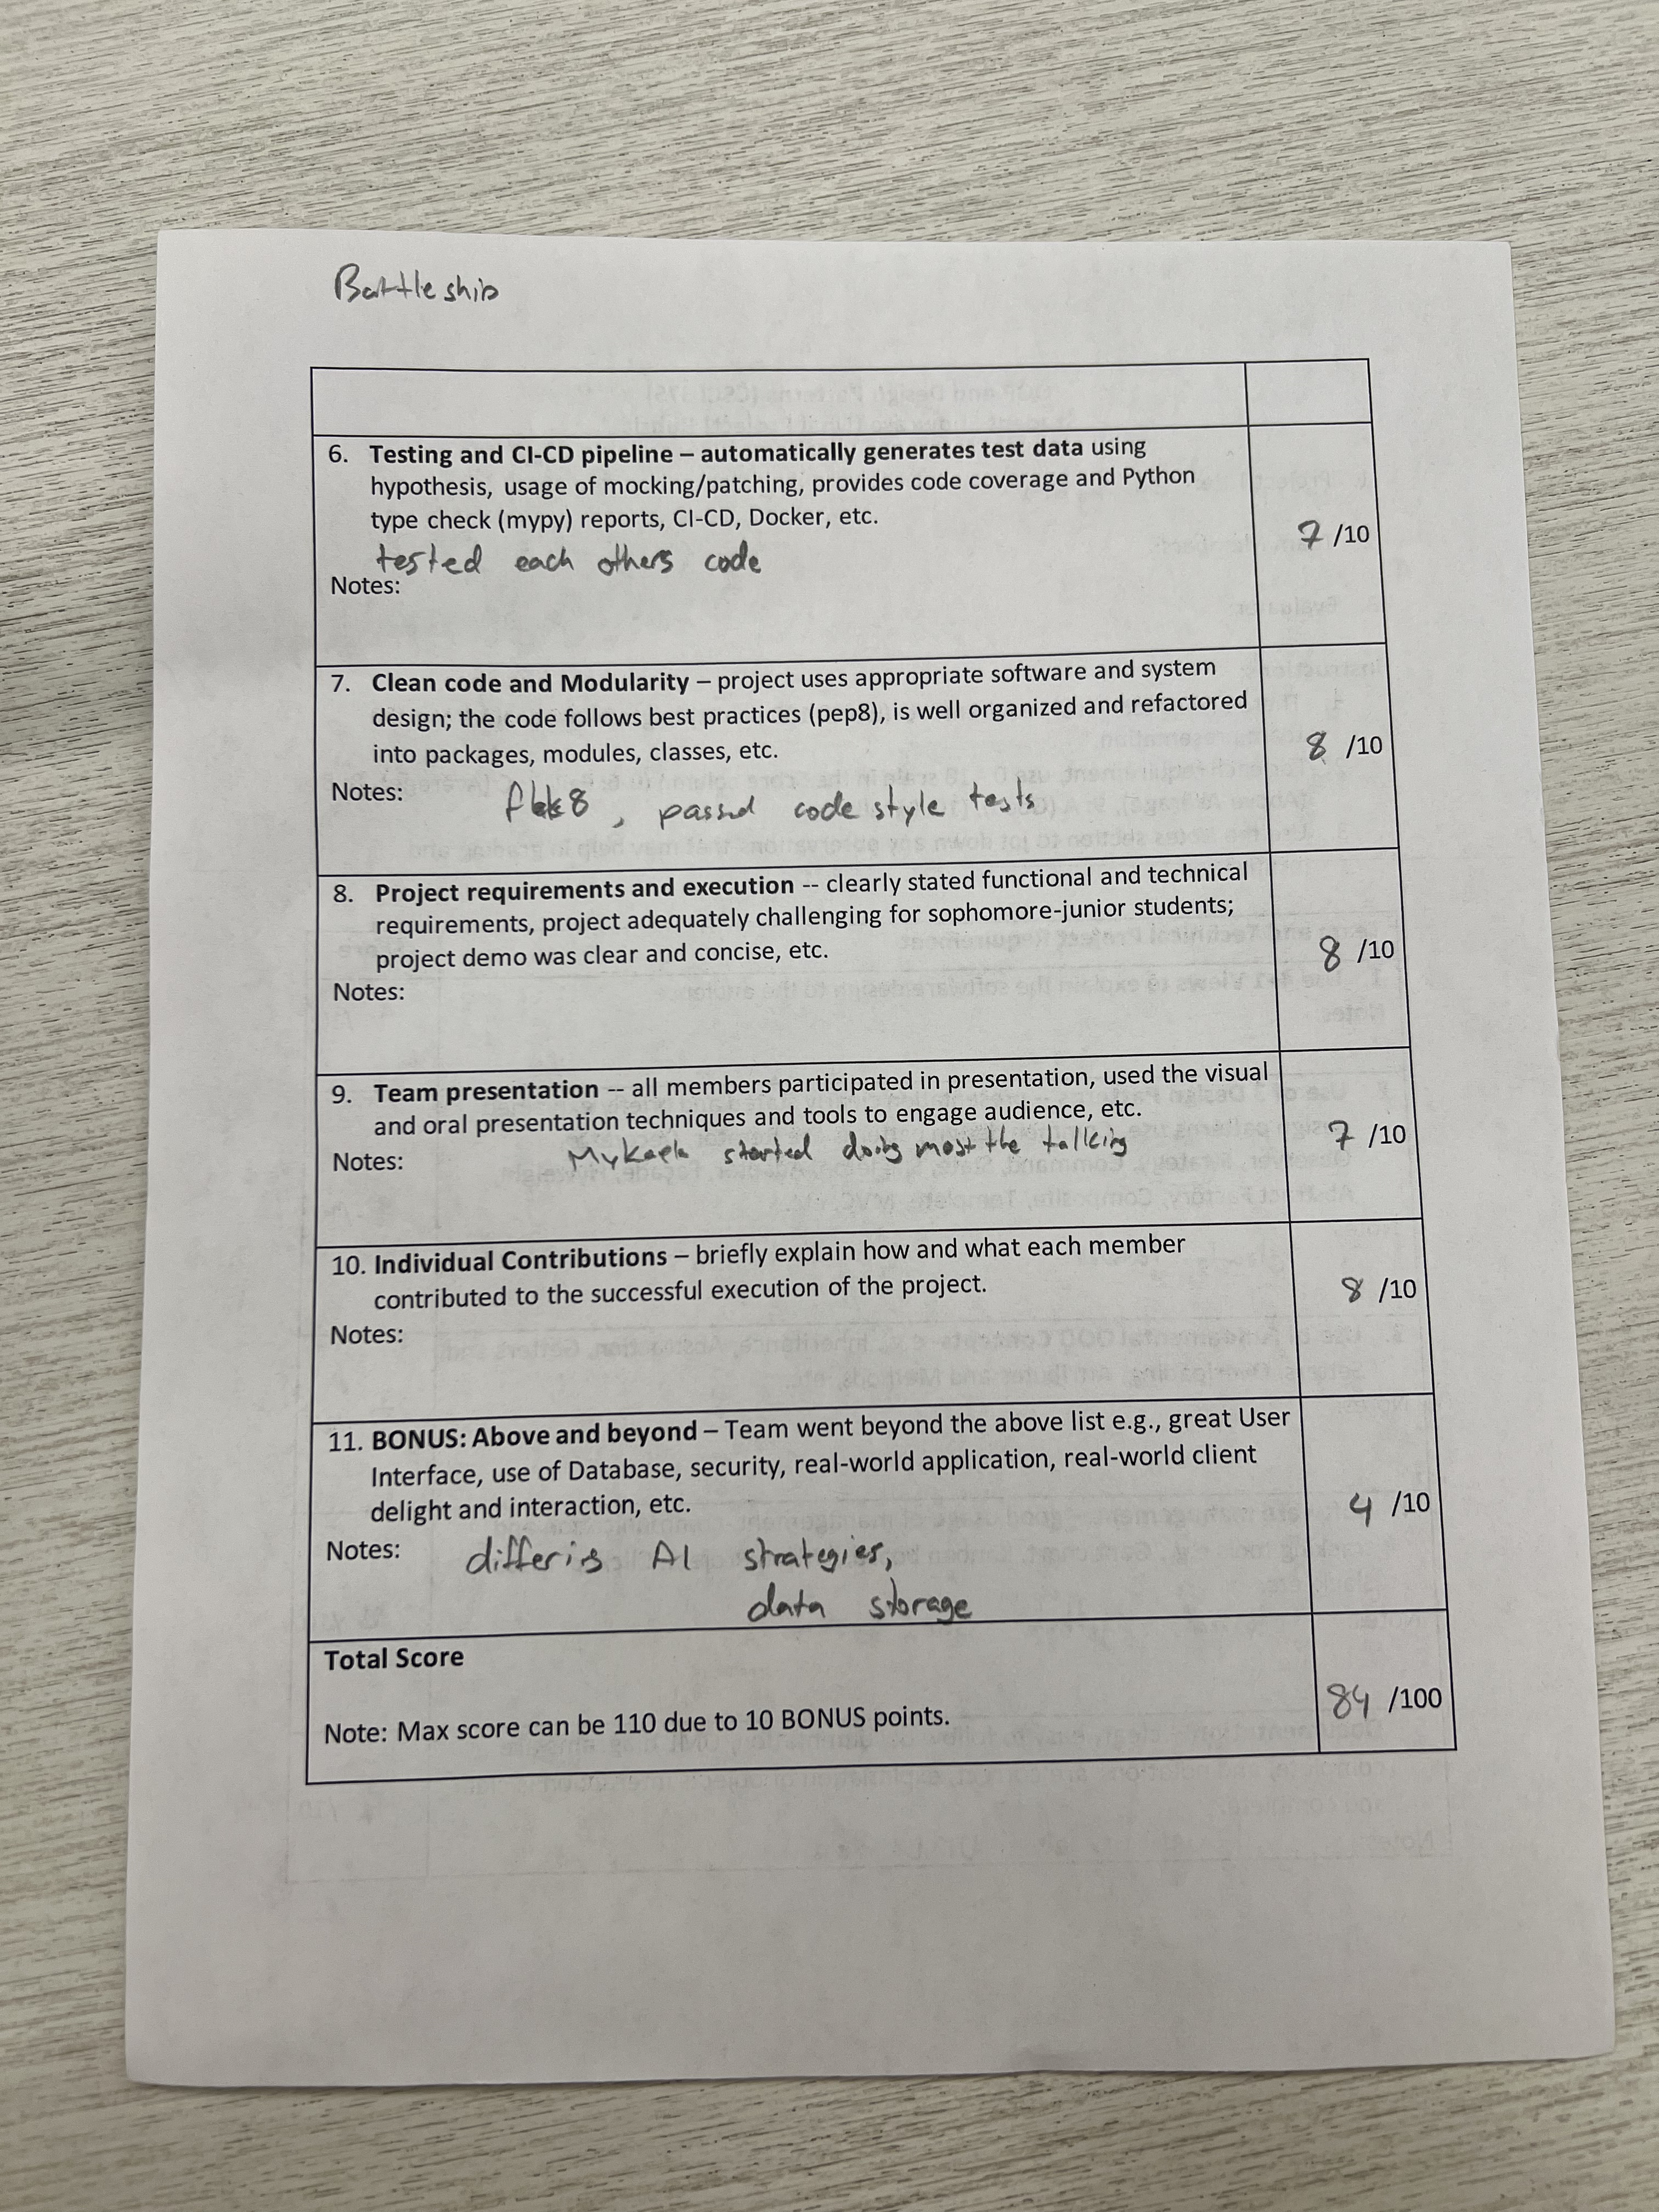 Battleship
6. Testing and CI-CD pipeline – automatically generates test data using
hypothesis, usage of mocking/patching, provides code coverage and Python
type check (mypy) reports, CI-CD, Docker, etc.
tested each others code
Notes:
7 /10
7. Clean code and Modularity – project uses appropriate software and system
design; the code follows best practices (pep8), is well organized and refactored
into packages, modules, classes, etc.
Notes: passed code style tests
8 /10
8. Project requirements and execution -- clearly stated functional and technical
requirements, project adequately challenging for sophomore-junior students;
project demo was clear and concise, etc.
Notes:
8 /10
9. Team presentation -- all members participated in presentation, used the visual
and oral presentation techniques and tools to engage audience, etc.
Notes: Mykaela started doing most the talking
7 /10
10. Individual Contributions – briefly explain how and what each member
contributed to the successful execution of the project.
Notes:
8 /10
11. BONUS: Above and beyond – Team went beyond the above list e.g., great User
Interface, use of Database, security, real-world application, real-world client
delight and interaction, etc.
Notes: differing AI strategies,
data storage
4 /10
Total Score
Note: Max score can be 110 due to 10 BONUS points.
84 /100